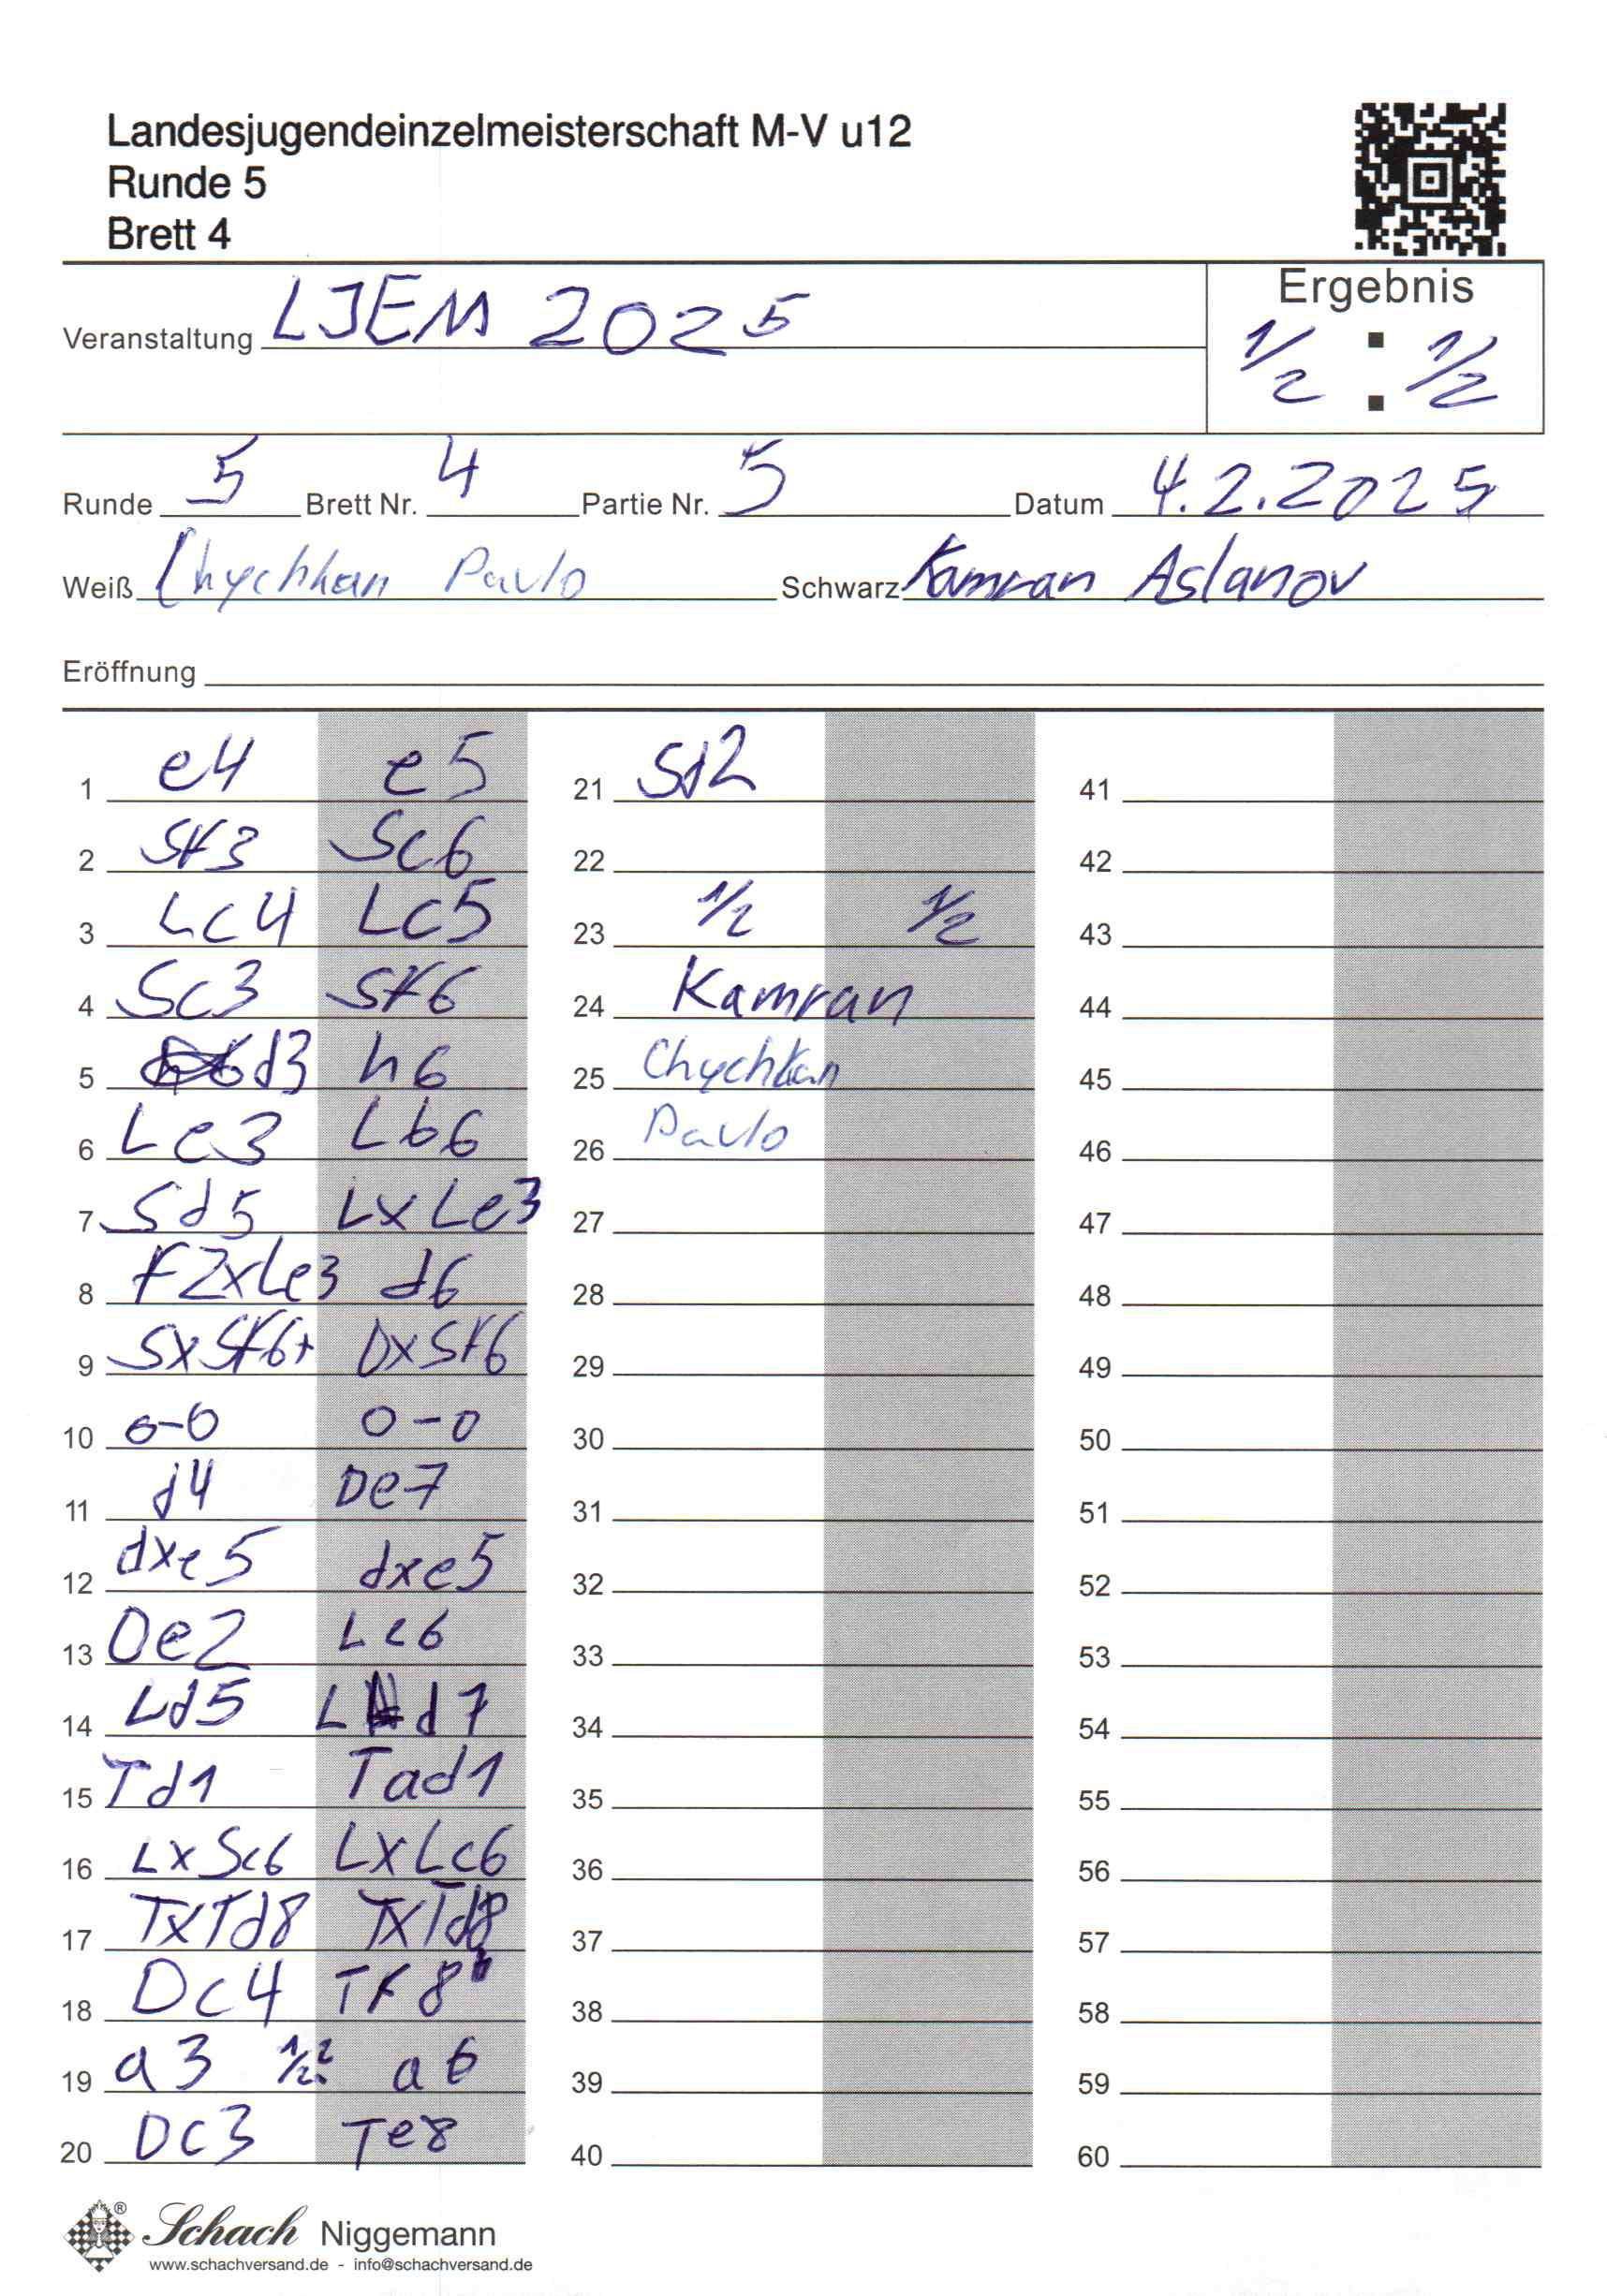 Landesjugendeinzelmeisterschaft M-V u12
Runde 5
Brett 4
Ergebnis
Veranstaltung LJEM 2025
1/2 : 1/2
Runde 5 Brett Nr. 4 Partie Nr. 5 Datum 4.2.2025
Weiß Chychkan Pavlo Schwarz Kamran Aslanov
Eröffnung
1 e4 e5 21 Sd2 41
2 Sf3 Sc6 22 42
3 Lc4 Lc5 23 1/2 1/2 43
4 Sc3 Sf6 24 Kamran 44
5 d3 h6 25 Chychkan 45
6 Le3 Lb6 26 Pavlo 46
7 Sd5 LxLe3 27 47
8 f2xLe3 d6 28 48
9 SxSf6+ DxSf6 29 49
10 0-0 0-0 30 50
11 d4 De7 31 51
12 dxe5 dxe5 32 52
13 De2 Le6 33 53
14 Ld5 Ld7 34 54
15 Td1 Tad1 35 55
16 LxSc6 LxLc6 36 56
17 TxTd8 TxTd8 37 57
18 Dc4 Tf8 38 58
19 a3 1/2? a6 39 59
20 Dc3 Te8 40 60
® Schach Niggemann
www.schachversand.de - info@schachversand.de